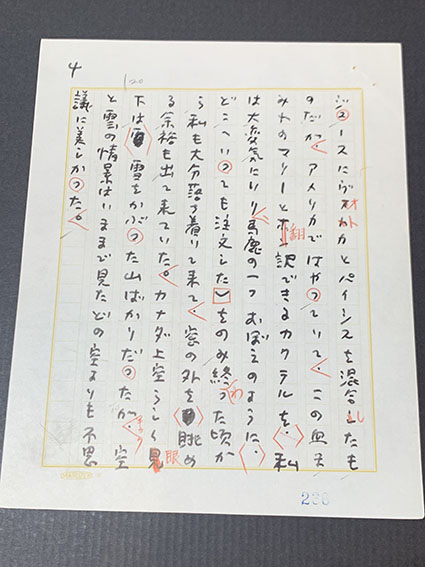 4
120
ジユースにヴオトカとパイスを混合したも
のだが、アメリカではやつていて、この血ま
みれのマリーと翻訳できるカクテルを、私
は大変気にいり馬鹿の一つおぼえのように、
どこへいつても注文した をのみ終わつた頃か
ら私も大分落ち着いて来て、窓の外を眺め
る余裕も出て来ていた。カナダ上空らしく眼
下は雪をかぶつた山ばかりだつたが、空
と雲の情景はいままで見たどの空よりも不思
議に美しかつた。